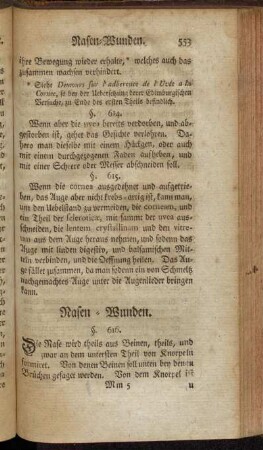 Nasen-Wunden. 553
ihre Bewegung wieder erhalte,* welches auch das
zusammen wachsen verhindert.
* Siehe Demours sur l'adherence de l'Uvée a la
Cornée, so bey der Uebersetzung derer Edinburgischen
Versuche, zu Ende des ersten Theils befindlich.
§. 614.
Wenn aber die uvea bereits verdorben, und ab-
gestorben ist, gehet das Gesichte verlohren. Da-
hero man dieselbe mit einem Häckgen, oder auch
mit einem durchgezogenen Faden aufheben, und
mit einer Scheere oder Messer abschneiden soll.
§. 615.
Wenn die cornea ausgedehnet und aufgetrie-
ben, das Auge aber nicht krebs-artig ist, kann man,
um den Uebelstand zu vermeiden, die corneam, und
ein Theil der sclerotica, mit samt der uvea aus-
schneiden, die lentem crystallinam und den vitreu-
um aus dem Auge heraus nehmen, und sodenn das
Auge mit linden digestiv, und balsamischen Mit-
teln verbinden, und die Oeffnung heilen. Das Au-
ge fället zusammen, da man sodenn ein von Schmelz
nachgemachtes Auge unter die Augenlieder bringen
kann.
Nasen-Wunden.
§. 616.
Die Nase wird theils aus Beinen, theils, und
zwar an dem untersten Theil von Knorpeln
formiret. Von denen Beinen soll unten bey denen
Brüchen gesaget werden. Von dem Knorpel ist
Mm 5 u